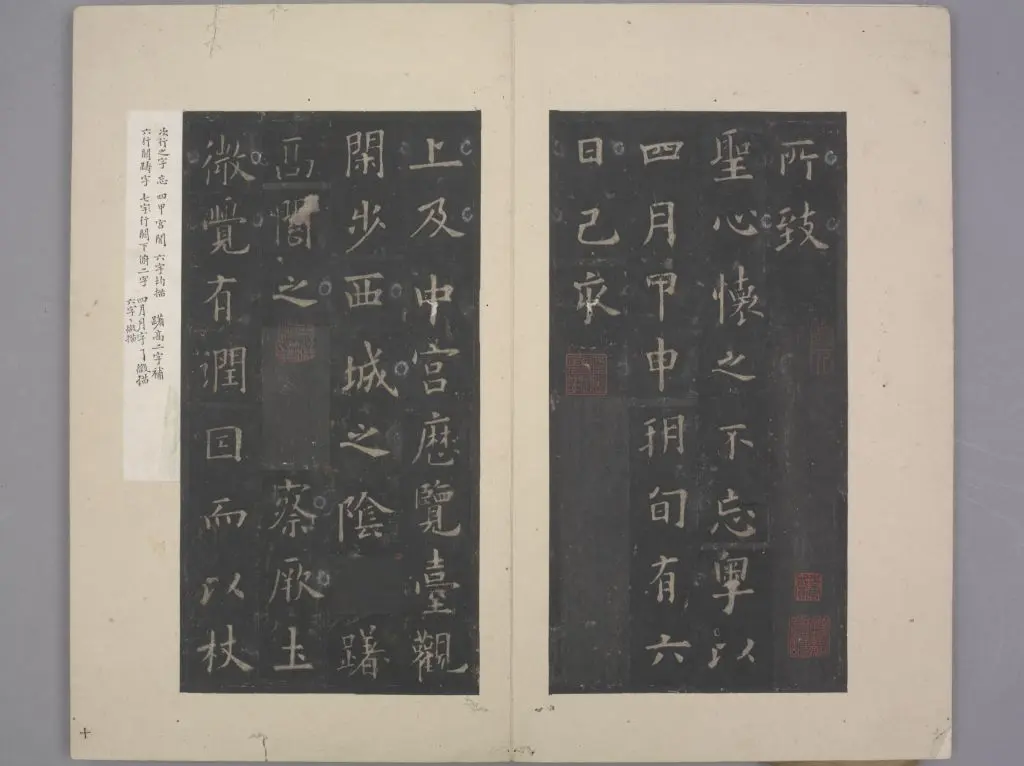 所致
聖心懷之不忘粤以
四月甲申朔旬有六
日己亥
上及中宮歷覽臺觀
閑步西城之陰躊
高閣之察厥土
微覺有潤因而以杖
次行之字 忘 四甲宮閣 六字均描 躊高二字補
六行關躊字 七字行關下渝二字 四月月字
微描
十